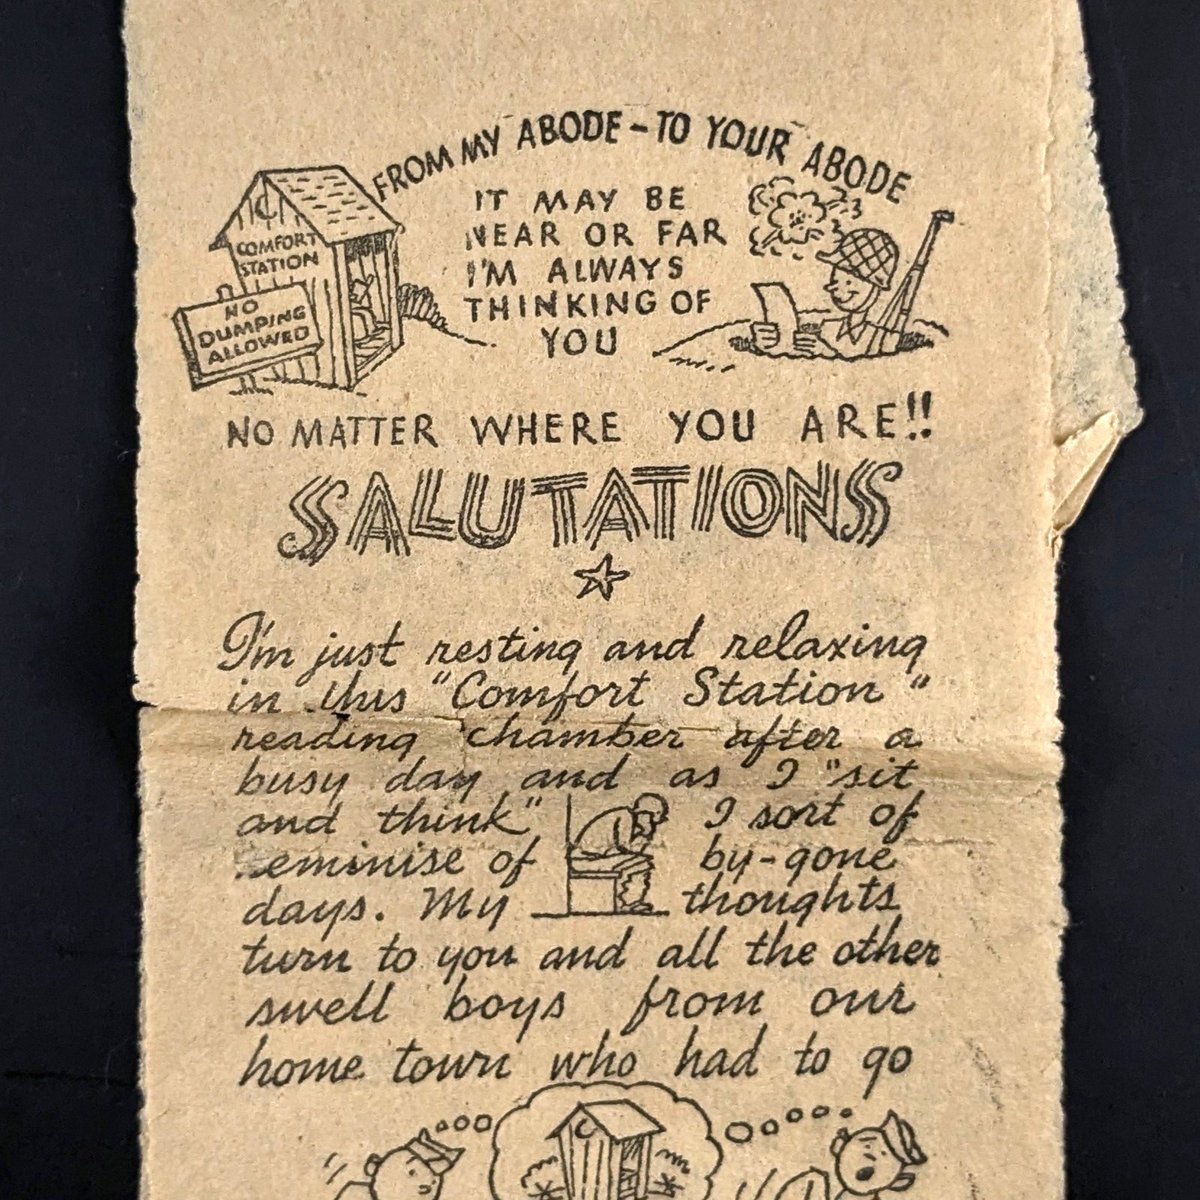 FROM MY ABODE - TO YOUR ABODE
COMFORT
STATION
NO
DUMPING
ALLOWED
IT MAY BE
NEAR OR FAR
I'M ALWAYS
THINKING OF
YOU
NO MATTER WHERE YOU ARE!!
SALUTATIONS
I'm just resting and relaxing
in this "Comfort Station"
reading chamber after a
busy day and as I "sit
and think" I sort of
eminise of by-gone
days. My thoughts
turn to you and all the other
swell boys from our
home town who had to go